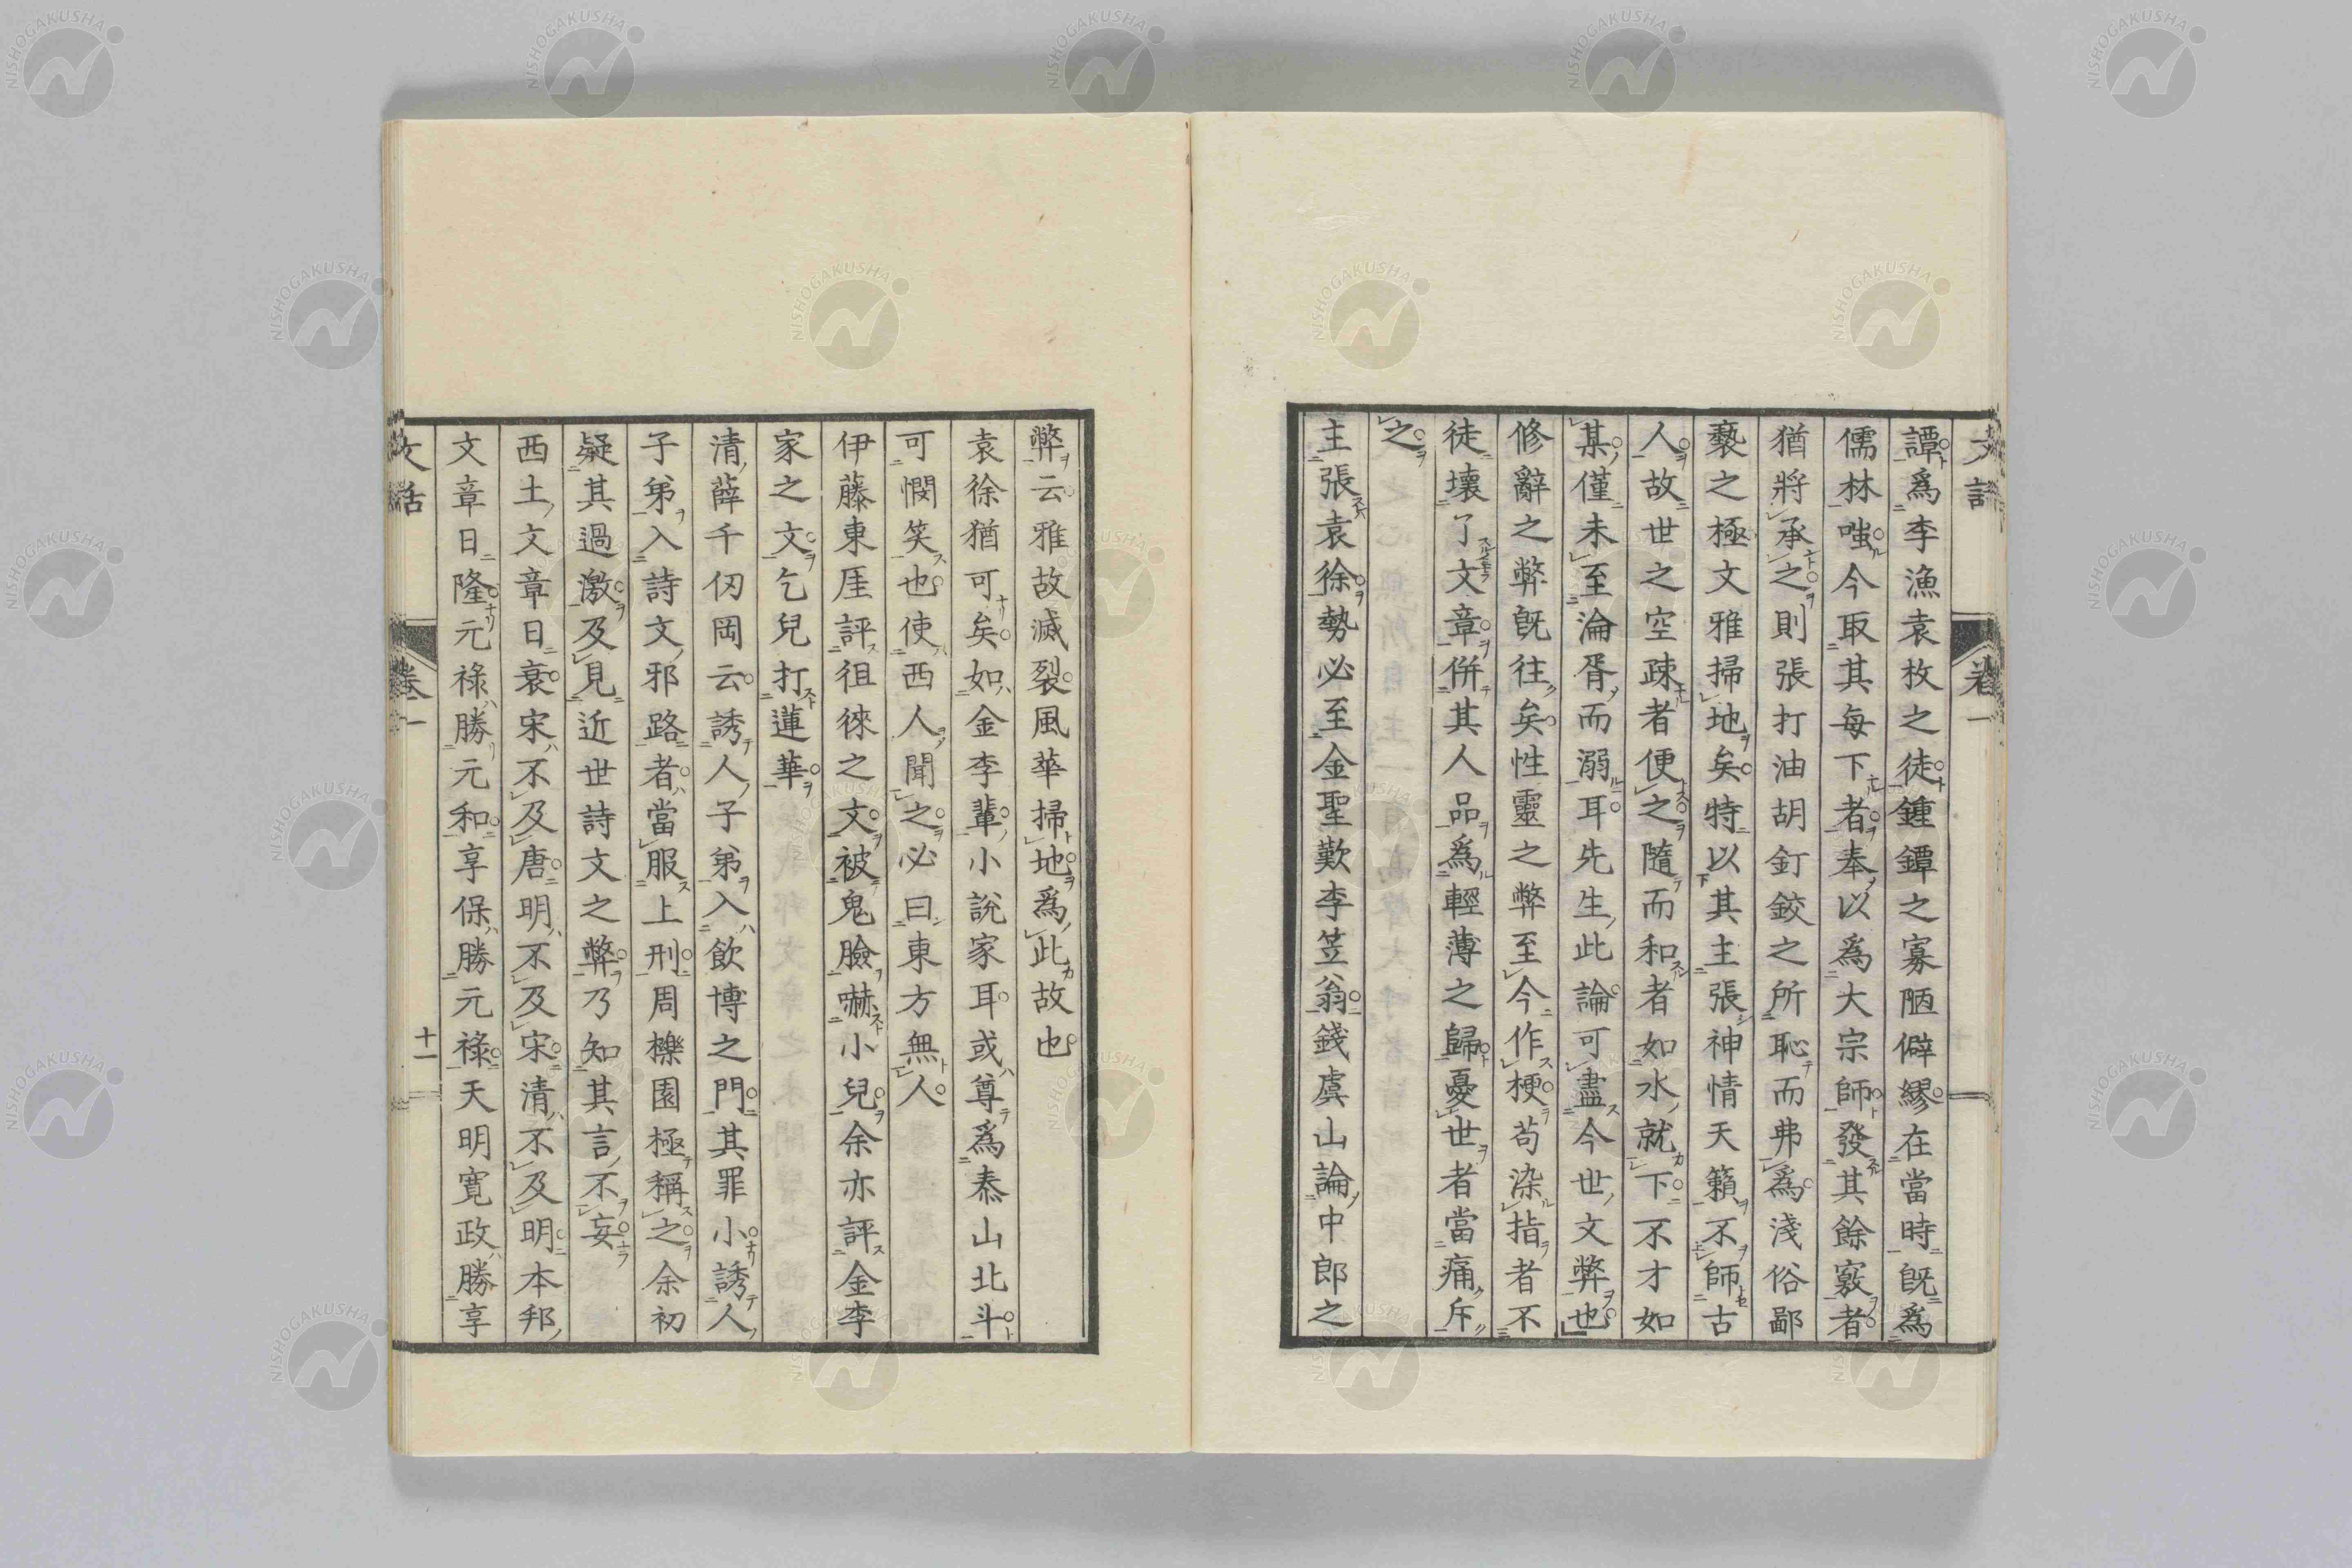 譚爲李漁袁枚之徒鍾鐔之寡陋僻繆在當時既爲
儒林嗤今取其每下者奉以爲大宗師發其餘竅者
猶將承之則張打油胡釘鉸之所恥而弗爲淺俗鄙
褻之極文雅掃地矣特以其主張神情天籟不師古
人故世之空疎者便之隨而和者如水就下不才如
某僅未至淪胥而溺耳先生此論可盡今世文弊也
修辭之弊既往矣性靈之弊至今作梗苟染指者不
徒壞了文章併其人品爲輕薄之歸憂世者當痛斥
之
主張袁徐勢必至金聖歎李笠翁錢虞山論中郎之
弊云雅故滅裂風華掃地爲此故也
袁徐猶可矣如金李輩小說家耳或尊爲泰山北斗
可憫笑也使西人聞之必曰東方無人
伊藤東厓評徂徠之文被鬼臉嚇小兒余亦評金李
家之文乞兒打蓮華
清薛千仞岡云誘人子弟入飲博之門其罪小誘人
子弟入詩文邪路者當服上刑周櫟園極稱之余初
疑其過激及見近世詩文之弊乃知其言不妄
西土文章日衰宋不及唐明不及宋清不及明本邦
文章日隆元祿勝元和享保勝元祿天明寬政勝享
文話
卷一
十一